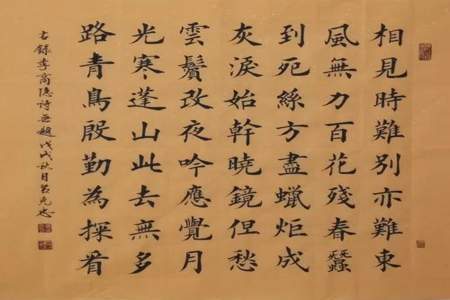 相見時難別亦難東
風無力百花殘春蠶
到死絲方盡蠟炬成
灰淚始幹曉鏡但愁
雲鬢改夜吟應覺月
光寒蓬山此去無多
路青鳥殷勤為探看
右錄李商隱詩無題戊戌秋月